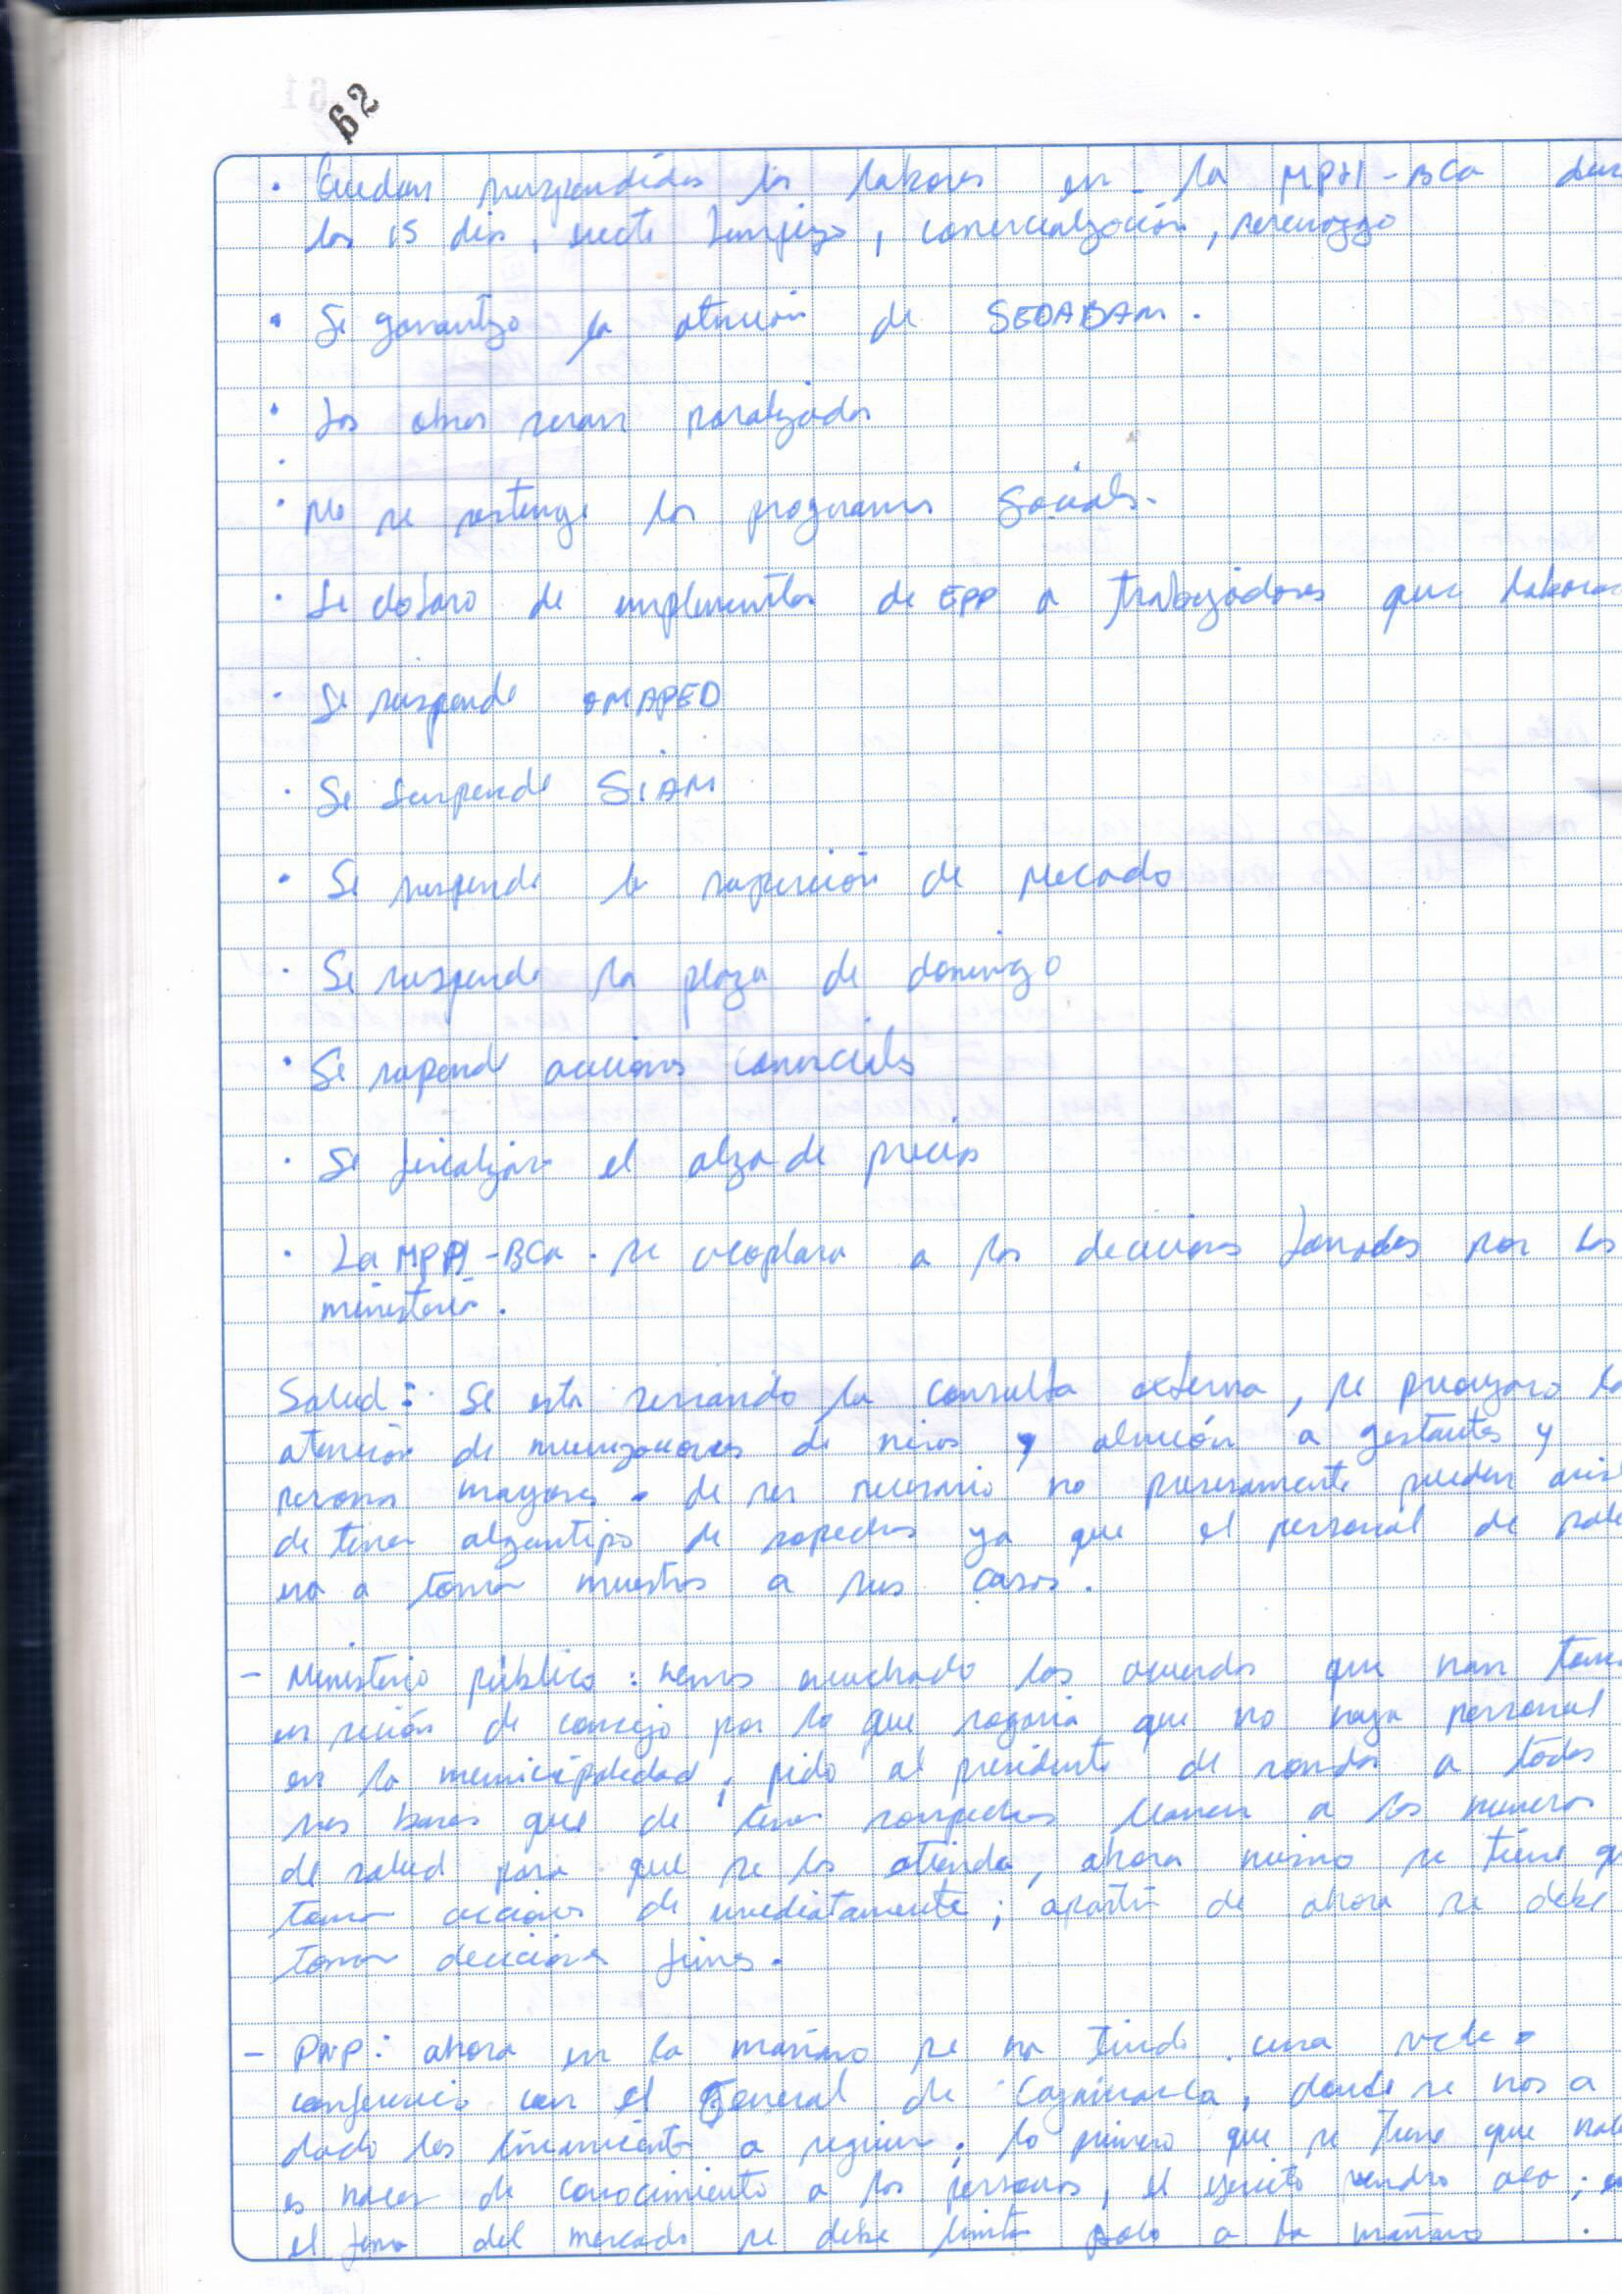 62
• Quedan suspendidas las labores en la MPH-BCA
los 15 dias, limpieza, comercialización,
• Se garantiza la atención de SEDABAM.
• Las obras seran paralizadas
•
• No se posterga los programas Sociales.
• Se dotara de implementos de EPP a trabajadores que
• Se suspende OMAPED
• Se suspende SIAM
• Se suspende la supervición de Mercado
• Se suspende la plaza de domingo
• Se supende acciones comerciales
• Se fiscalizara el alza de precios
• La MPH-BCA. se acoplara a las deciciones tomadas por los
ministerios.
Salud: Se esta cerrando la consulta externa, se la
atención de inmunizaciones de niños y atención a gestantes y
personas mayores. de ser necesario no pueden
de tener algun tipo de sopechas ya que el personal de
a tomar muestras a sus casas.
- Ministerio público: hemos escuchado los acuerdos que han
en seción de consejo por lo que que no haya personal
en la municipalidad, pido al presidente de rondas a todas
sus bases que de tener sospechas llamen a los numeros
de salud para que se los atienda, ahora mismo se tiene
tomar acciones de inmediatamente; apartir de ahora se debe
tomar deciciones firmes.
- PNP: ahora en la mañana se ha tenido una
conferencia con el General de Cajamarca, donde se nos a
dado los lineamientos a seguir. lo primero que se tiene que
es hacer de conocimiento a las personas, el ejercito vendra aca;
el tema del mercado se debe limitar solo a la mañana.